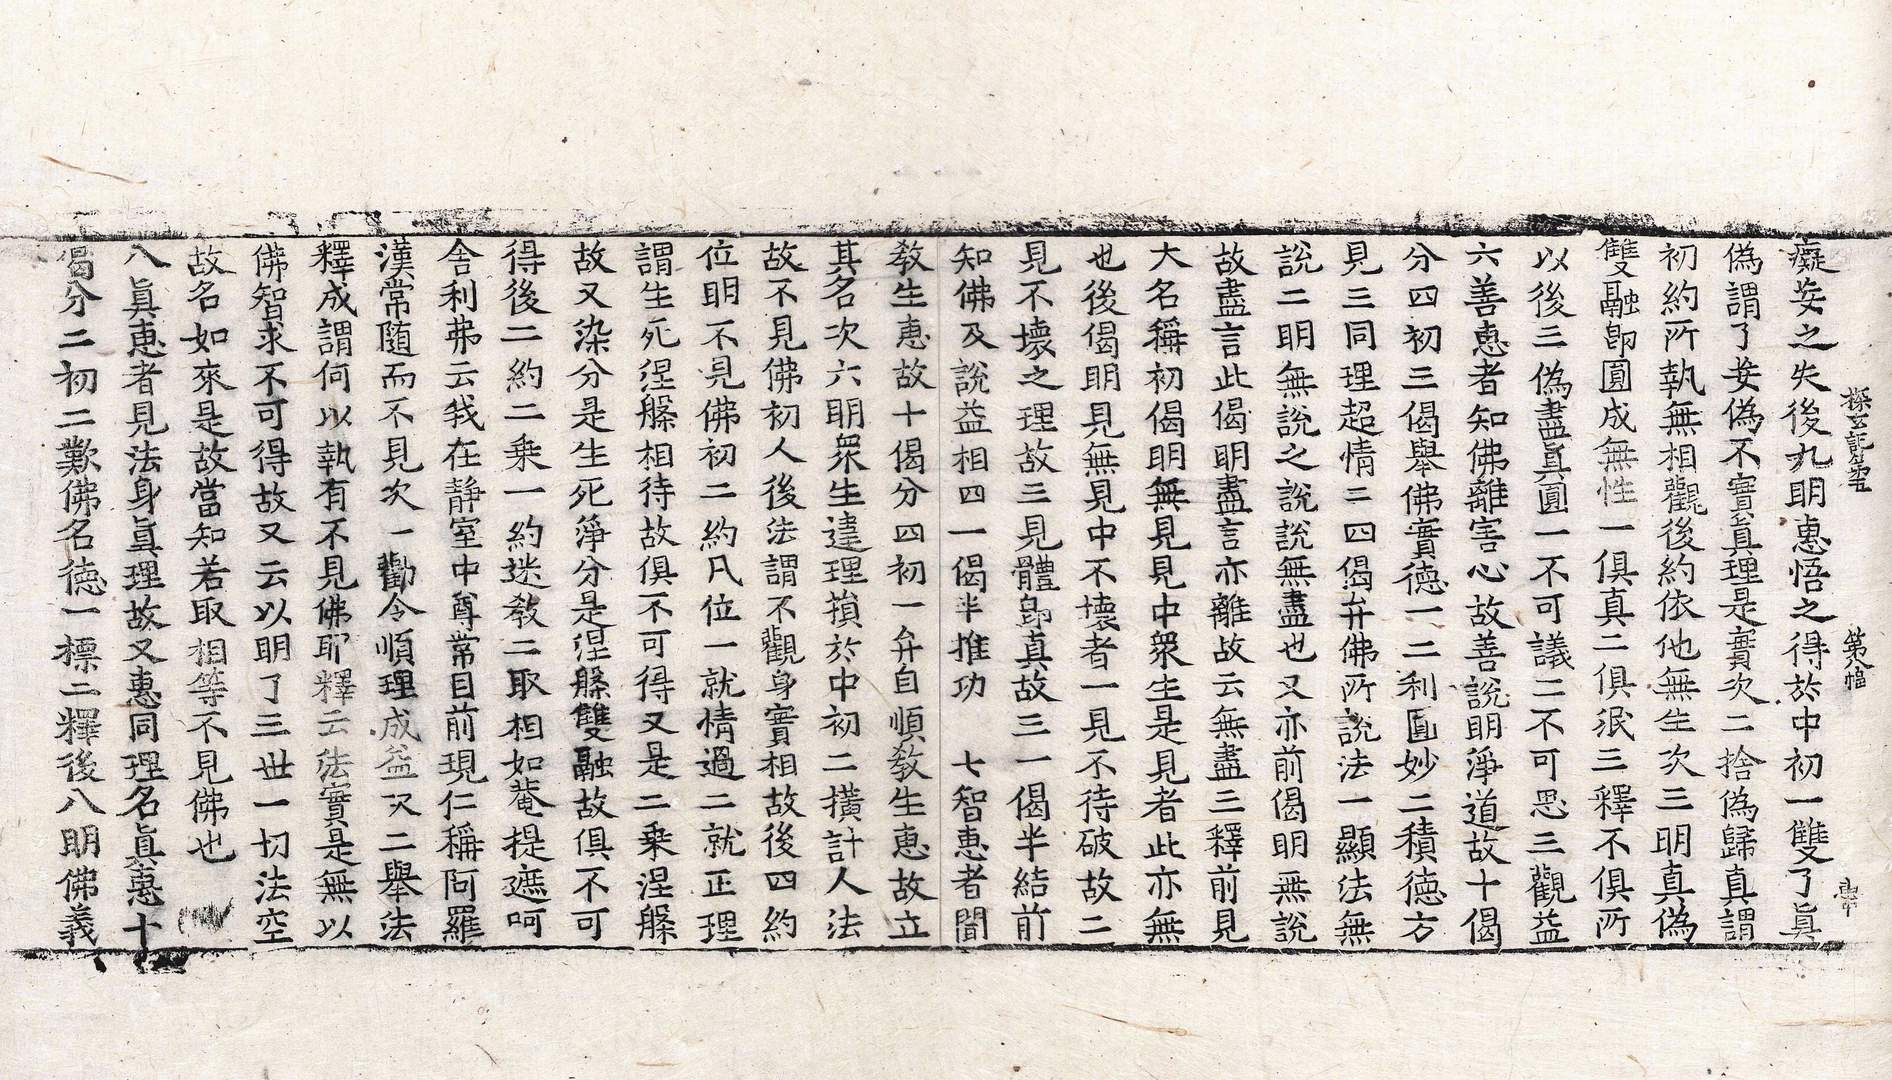 探玄記第五 第八幅
癡妄之失後九明惠悟之得於中初一雙了眞
偽謂了妄偽不實眞理是實次二捨偽歸真謂
初約所執無相觀後約依他無生次三明真偽
雙融卽圓成無性一俱真二俱泯三釋不俱所
以後三偽盡眞圓一不可議二不可思三觀益
六善惠者知佛離害心故善說明淨道故十偈
分四初三偈舉佛實德一二利圓妙二積德方
見三同理超情二四偈弁佛所說法一顯法無
說二明無說之說說無盡也又亦前偈明無說
故盡言此偈明盡言亦離故云無盡三釋前見
大名稱初偈明無見見中衆生是見者此亦無
也後偈明見無見中不壞者一見不待破故二
見不壞之理故三見體卽真故三一偈半結前
知佛及說益相四一偈半推功 七智惠者聞
教生惠故十偈分四初一弁自順教生惠故立
其名次六明衆生違理損於中初二橫計人法
故不見佛初人後法謂不觀身實相故後四約
位明不見佛初二約凡位一就情過二就正理
謂生死涅槃相待故俱不可得又是二乗涅槃
故又染分是生死淨分是涅槃雙融故俱不可
得後二約二乗一約迷教二取相如菴提遮呵
舍利弗云我在靜室中尊常目前現仁稱阿羅
漢常隨而不見次一勸令順理成益次二舉法
釋成謂何以執有不見佛耶釋云法實是無以
佛智求不可得故又云以明了三世一切法空
故名如來是故當知若取相等不見佛也
八眞惠者見法身眞理故又惠同理名眞惠十
偈分二初二歎佛名德一標二釋後八明佛義